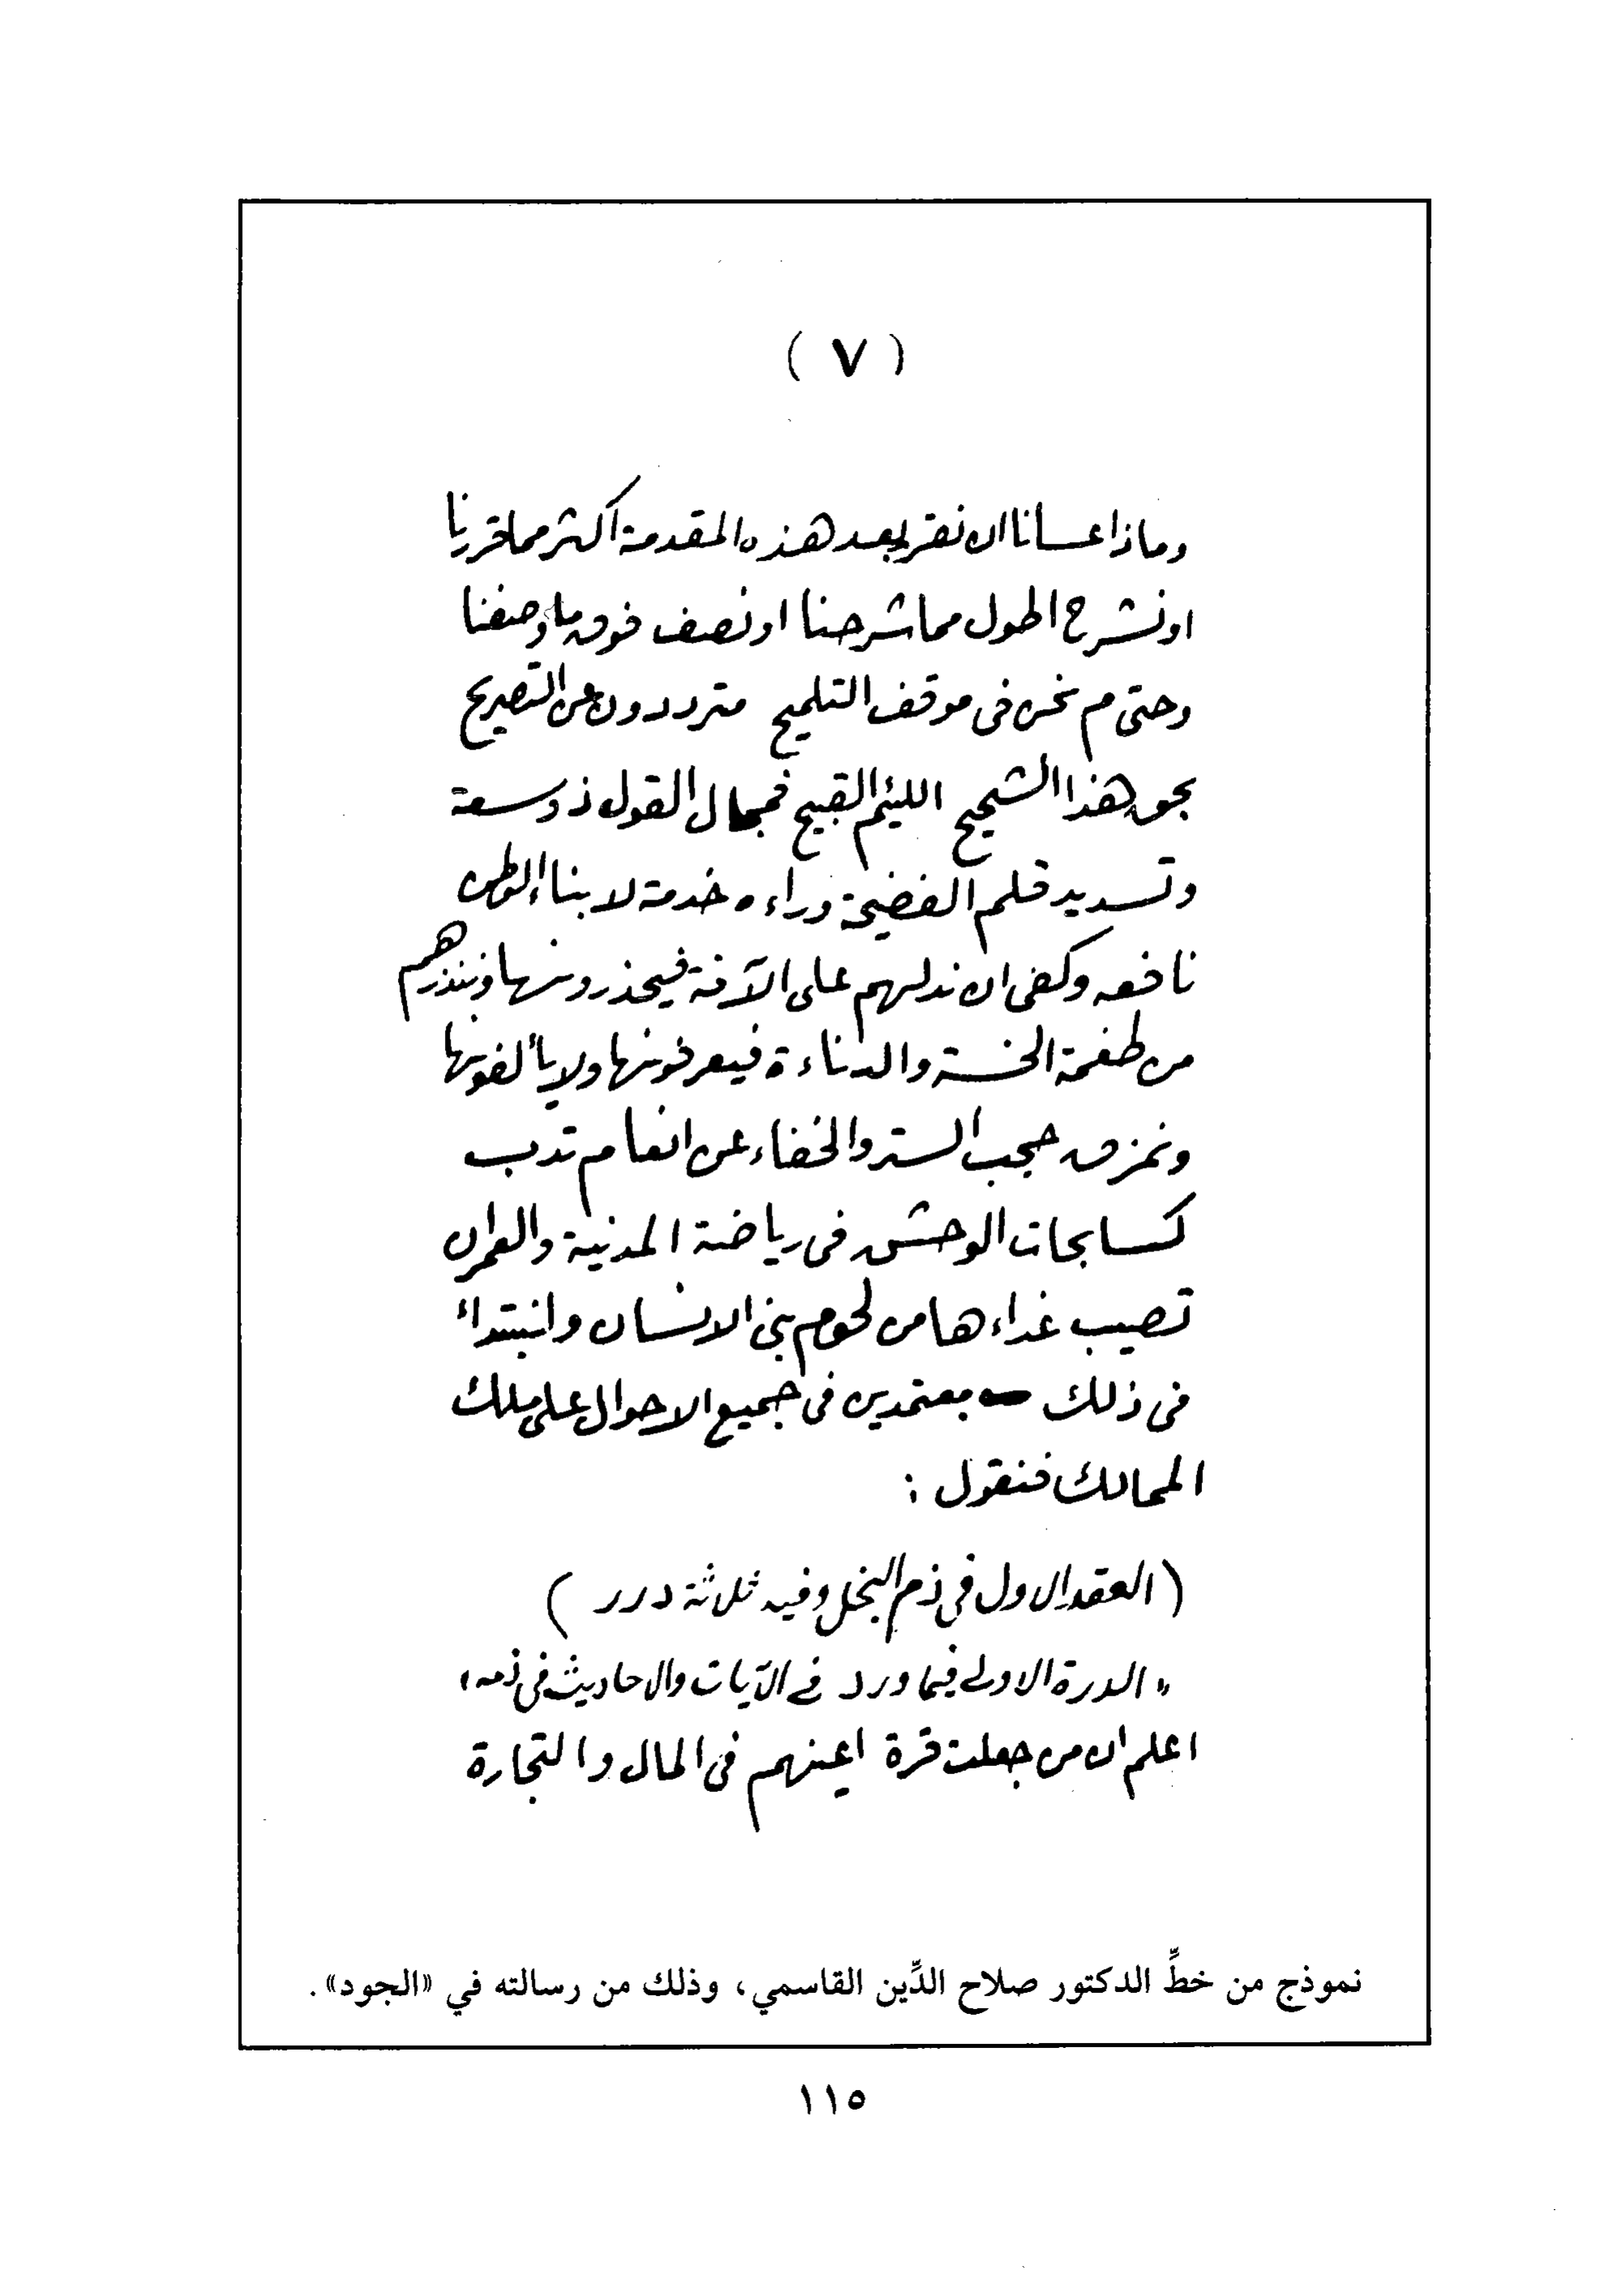 ( ٧ )
وماذا عسانا ان نقر بعد هذه المقدمة اكثر مما قررنا
او نشرح اطول مما شرحنا او نصف فوق ما وصفنا
وحتى م نحن في موقف التلميح مترددون عن التصريح
بحق هذا الشحيح اللئيم القبيح فمجال القول ذو سعة
وتسديد قلم الفضيحة وراءه خدمة لابناء الوطن
نافعه وكفى ان ندلهم على الآفة فيحذرونها وننذرهم
من طغمة الخسة والدناءة فيعرفونها ولا يألفونها
ونمزق حجب الستر والخفاء عن انعام تدب
كسابحات الوحش في رياضة المدنية والعمران
تصيب غذاءها من لحوم بني الانسان وانبتدأ
في ذلك معتمدين في جميع الاحوال على ملك
الممالك فنقول :
( العقد الاول في ذم البخل وفيه ثلاثة درر )
" الدرة الاولى فيما ورد في الآيات والاحاديث في ذمه "
اعلم ان من جعلت قرة اعينهم في المال والتجارة
نموذج من خطِّ الدكتور صلاح الدِّين القاسمي، وذلك من رسالته في «الجود».
١١٥